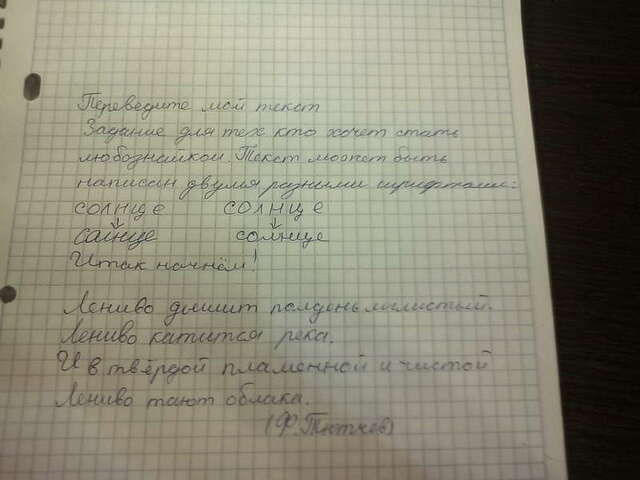 Переведите мой текст
Задание для тех кто хочет стать
любознайкой. Текст может быть
написан двумя разными шрифтами:
солнце солнце
солнце солнце
Итак начнём!
Лениво дышит полдень мглистый.
Лениво катится река.
И в твёрдой пламенной и чистой
Лениво тают облака.
(Ф. Тютчев)